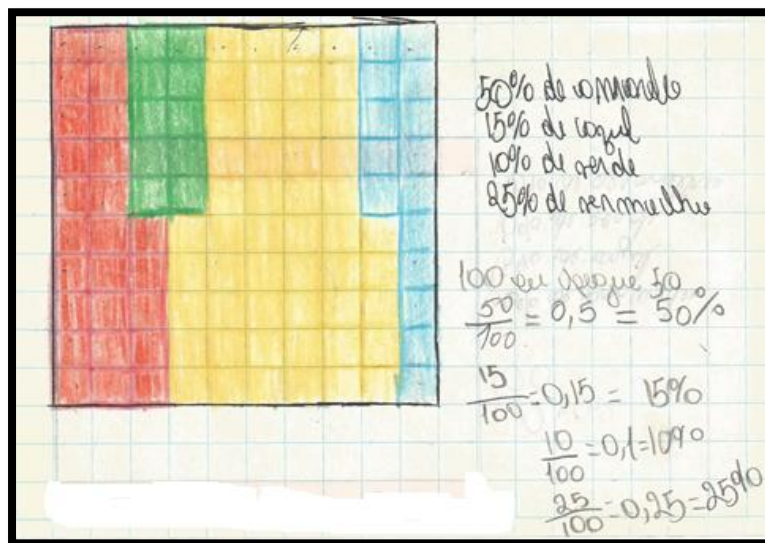 50% de amarelo
15% de azul
10% de verde
25% de vermelho
100 eu peque 50
50/100 = 0,5 = 50%
15/100 = 0,15 = 15%
10/100 = 0,1 = 10%
25/100 = 0,25 = 25%